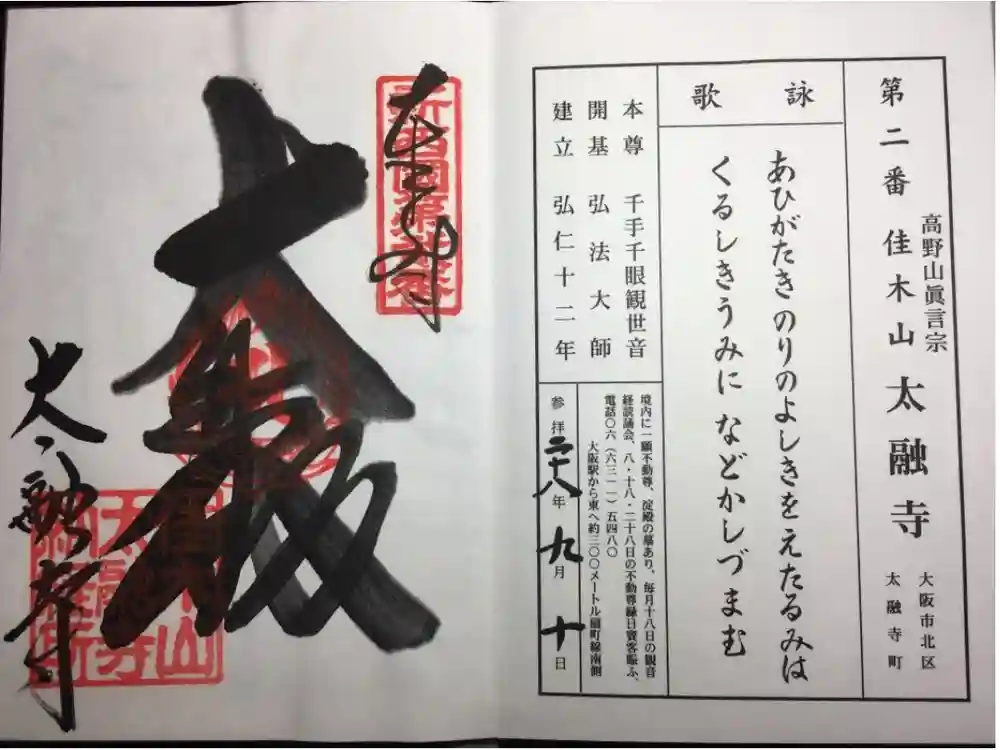 第二番 佳木山 太融寺
高野山眞言宗
大阪市北区
太融寺町
詠歌
あひがたきのりのよしきをえたるみは
くるしきうみに などかしづまむ
本尊 千手千眼観世音
開基 弘法大師
建立 弘仁十二年
境内に一願不動尊、淀殿の墓あり、毎月十八日の観音
経読誦会、八・十八・二十八日の不動尊縁日賽客賑ふ、
電話〇六(六三一一)五四八〇
大阪駅から東へ約三〇〇メートル扇町線南側
参拝二十八年九月十日
奉拝
新西國第弐番
大悲殿
太融寺